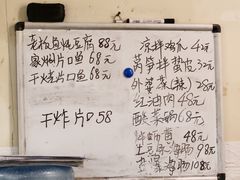 老板鱼炖豆腐 88元
家焖片口鱼 68元
干烧片口鱼 68元
干炸片口 58
凉拌鸡爪 42元
莴笋拌蜇皮 32元
外婆菜(辣) 28元
红油肉 48元
酸菜 68元
48元
土豆 98元
108元